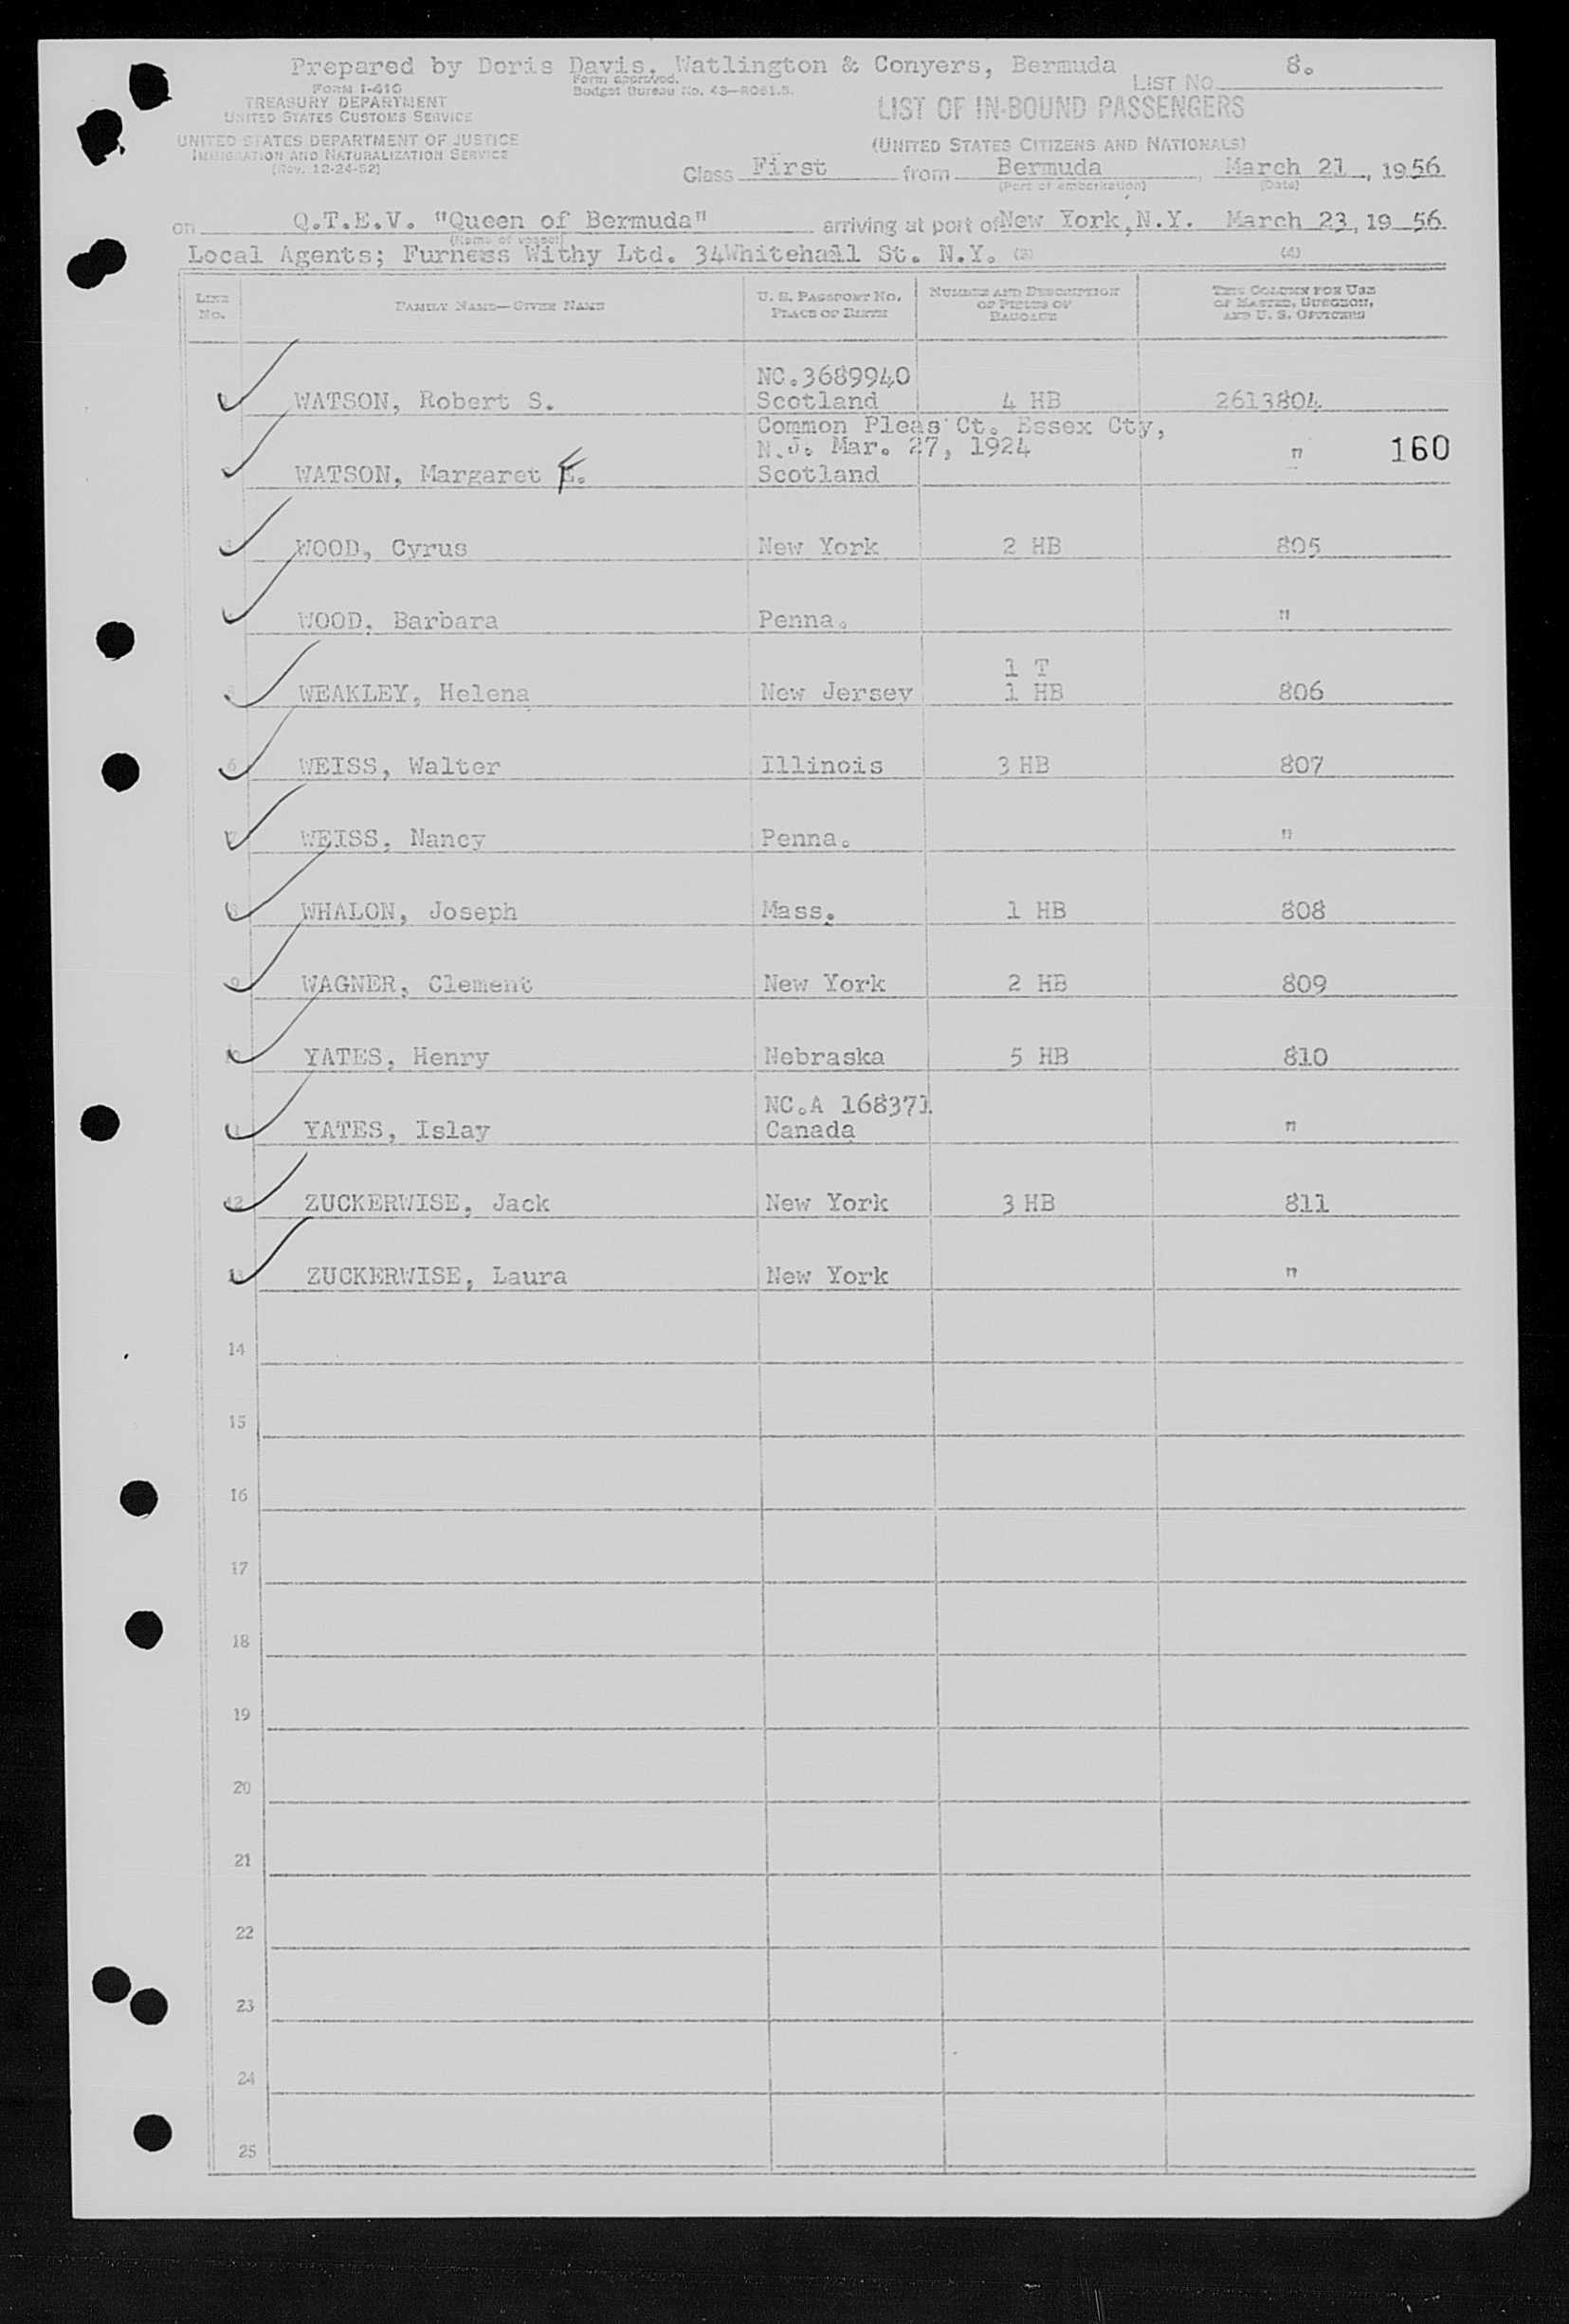 Prepared by Doris Davis, Watlington & Conyers, Bermuda
FORM I-418
TREASURY DEPARTMENT
UNITED STATES CUSTOMS SERVICE
UNITED STATES DEPARTMENT OF JUSTICE
IMMIGRATION AND NATURALIZATION SERVICE
(Rev. 12-24-52)
Form approved.
Budget Bureau No. 43-R061.5.
LIST NO. 8.
LIST OF IN-BOUND PASSENGERS
(UNITED STATES CITIZENS AND NATIONALS)
Class First from Bermuda, March 21, 1956
(Port of embarkation) (Date)
on Q.T.E.V. "Queen of Bermuda" arriving at port of New York, N.Y. March 23, 19 56
(Name of vessel)
Local Agents; Furness Withy Ltd. 34Whitehall St. N.Y. (3) (4)
LINE NO. FAMILY NAME—GIVEN NAME U. S. PASSPORT NO. PLACE OF BIRTH NUMBER AND DESCRIPTION OF PIECES OF BAGGAGE THIS COLUMN FOR USE OF MASTER, SURGEON, AND U. S. OFFICERS
NC.3689940
WATSON, Robert S. Scotland 4 HB 2613804
Common Pleas Ct. Essex Cty,
N.J. Mar. 27, 1924 " 160
WATSON, Margaret F. Scotland
WOOD, Cyrus New York 2 HB 805
WOOD, Barbara Penna. "
1 T
WEAKLEY, Helena New Jersey 1 HB 806
6 WEISS, Walter Illinois 3 HB 807
WEISS, Nancy Penna. "
WHALON, Joseph Mass. 1 HB 808
9 WAGNER, Clement New York 2 HB 809
10 YATES, Henry Nebraska 5 HB 810
NC.A 168371
YATES, Islay Canada "
12 ZUCKERWISE, Jack New York 3 HB 811
13 ZUCKERWISE, Laura New York "
14
15
16
17
18
19
20
21
22
23
24
25